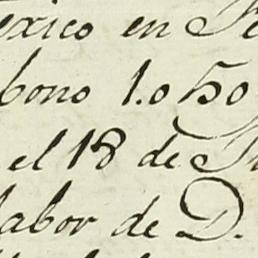 exico en
bono 1.050
el 18 de
labor de D.